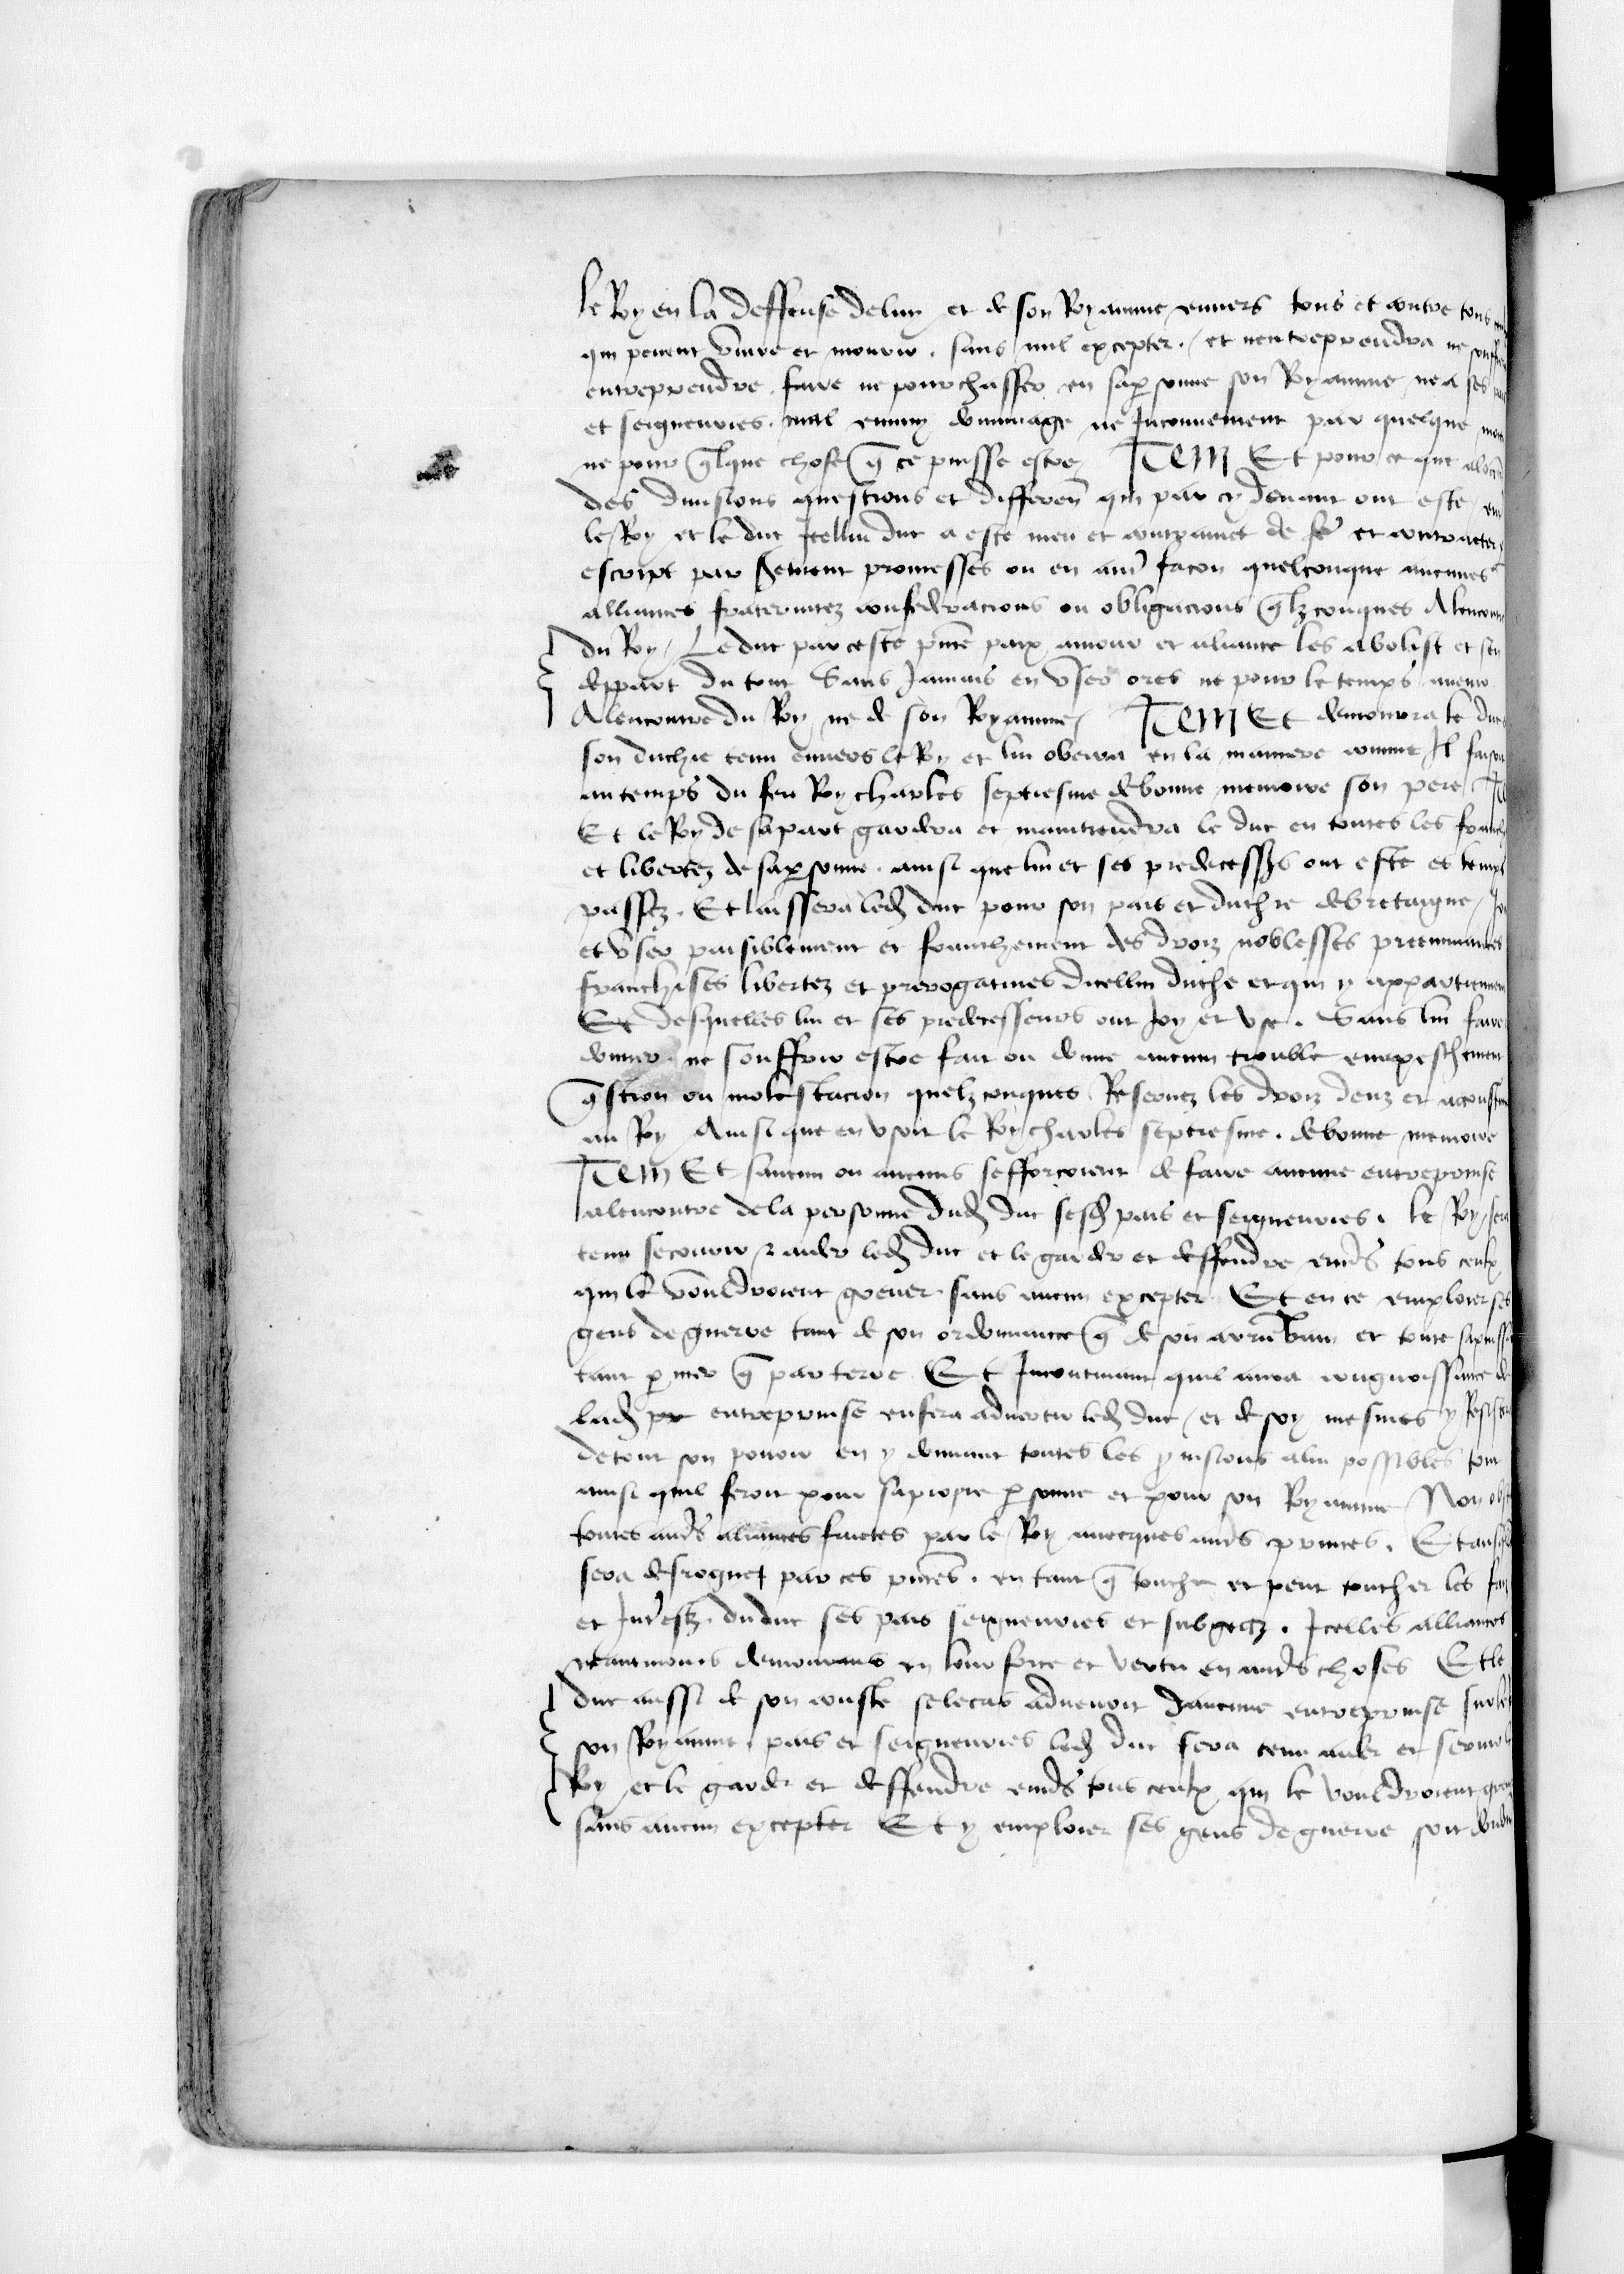 le Roy en la deffense de luy et de son Royaume envers tous et contre tous
qui pevent vivre et mourir. sans nul excepter. et nentreprendra ne
entreprendre faire ne pourchasser en sa psonne son Royaume ne a ses
et seigneuries. mal ennuy dommage ne Inconvenient par quelque
ne pour qlque chose q ce puisse estre / Item Et pour ce que
des divisions questions et differen qui par cy devant ont este
le Roy et le duc Icellui duc a este meu et contraint de fe et contracter
escript par serement promesses ou en aut facon quelconque aucunes
alliances fraternitez confederacions ou obligacions qlzconques Alencontre
du Roy / Le duc par ceste pnte paix amour et aliance les abolist et sen
depart du tout Sans Jamais en vser ores ne pour le temps avenir
Alencontre du Roy ne de son Royaume / Item Et demourra le duc
son duchie tenu envers le Roy et lui obeira en la maniere comme Il faisoit
au temps du feu Roy charles septiesme de bonne memoire son pere
Et le Roy de sa part gardera et maintiendra le duc en toutes les
et libertez de sa psonne. ainsi que lui et ses predecesss ont este es temps
passez. Et laissera led duc pour son pais et duchie de bretaigne
et vser paisiblement et franchement des droiz noblesses preeminances
franchises libertez et prerogatives dicellui duche et qui y appartiennent
Et desquelles lui et ses predecesseurs ont Joy et vse. Sans lui faire
donner ne souffrir estre fait ou donne aucun trouble empeschement
qstion ou molestacion quelzconques Reservez les droiz deuz et
au Roy Ainsi que en vsoit le Roy charles septiesme. de bonne memoire
Item Et saucun ou aucuns sefforcoient de faire aucune entreprinse
alencontre de la personne dud duc sesd pais et seigneuries. le Roy sera
tenu secourir & aider led duc et le garder et deffendre envs tous ceulx
qui le vouldroient grever sans aucun excepter Et en ce emploier ses
gens de guerre tant de son ordonnance q de son arriereban et toute
tant p mer q par terre Et Incontinant quil aura congnoissance de
lad entreprinse en fera advertir led duc / et de soy mesmes y
de tout son povoir en y donnant toutes les pvisions a lui possibles tout
ainsi quil feroit pour sa propre psonne et pour son Royaume / Non
toutes auts aliances faictes par le Roy avecques auts princes. Et
sera desrogue par ces pntes. en tant q touche et peut toucher les
et Intestz du duc ses pais seigneuries et subgectz. Icelles alliances
neantmoins demourans en leur force et vertu en auts choses Et le
duc aussi de son couste se le cas advenoit daucune entreprinse sur le
son Royaume. pais et seigneuries led duc sera tenu aider et
Roy et le garder et deffendre envs tous ceulx qui le vouldroient
sans aucun excepter Et y emploier ses gens de guerre soit